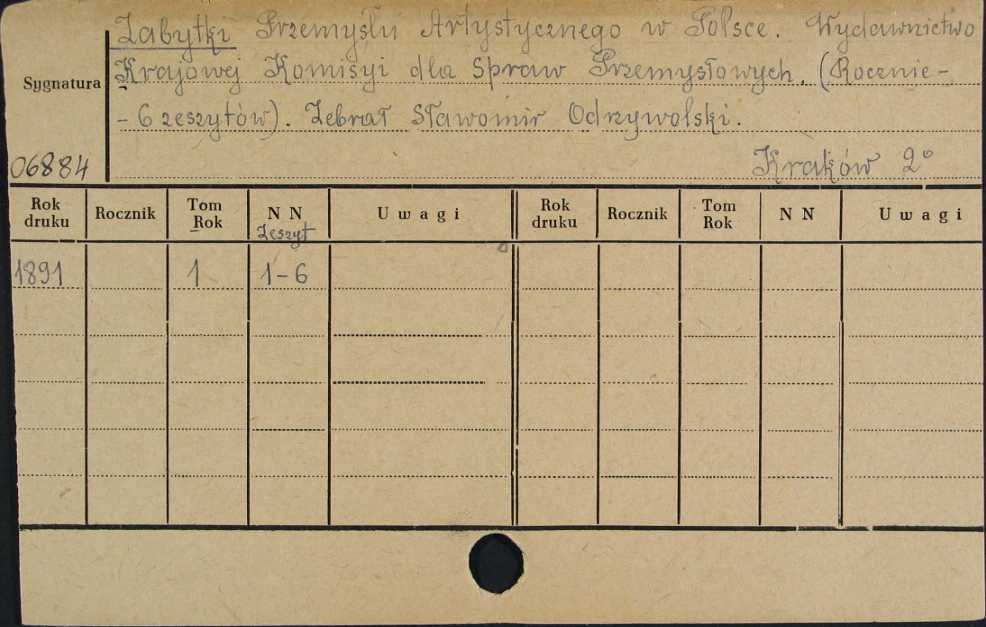 Zabytki Przemysłu Artystycznego w Polsce. Wydawnictwo
Krajowej Komisyi dla Spraw Przemysłowych. (Rocznie-
Sygnatura
- 6 zeszytów). Zebrał Sławomir Odrzywolski.
06884
Kraków 2°
Rok druku Rocznik Tom Rok N N Zeszyt U w a g i Rok druku Rocznik Tom Rok N N U w a g i
1891 1 1-6